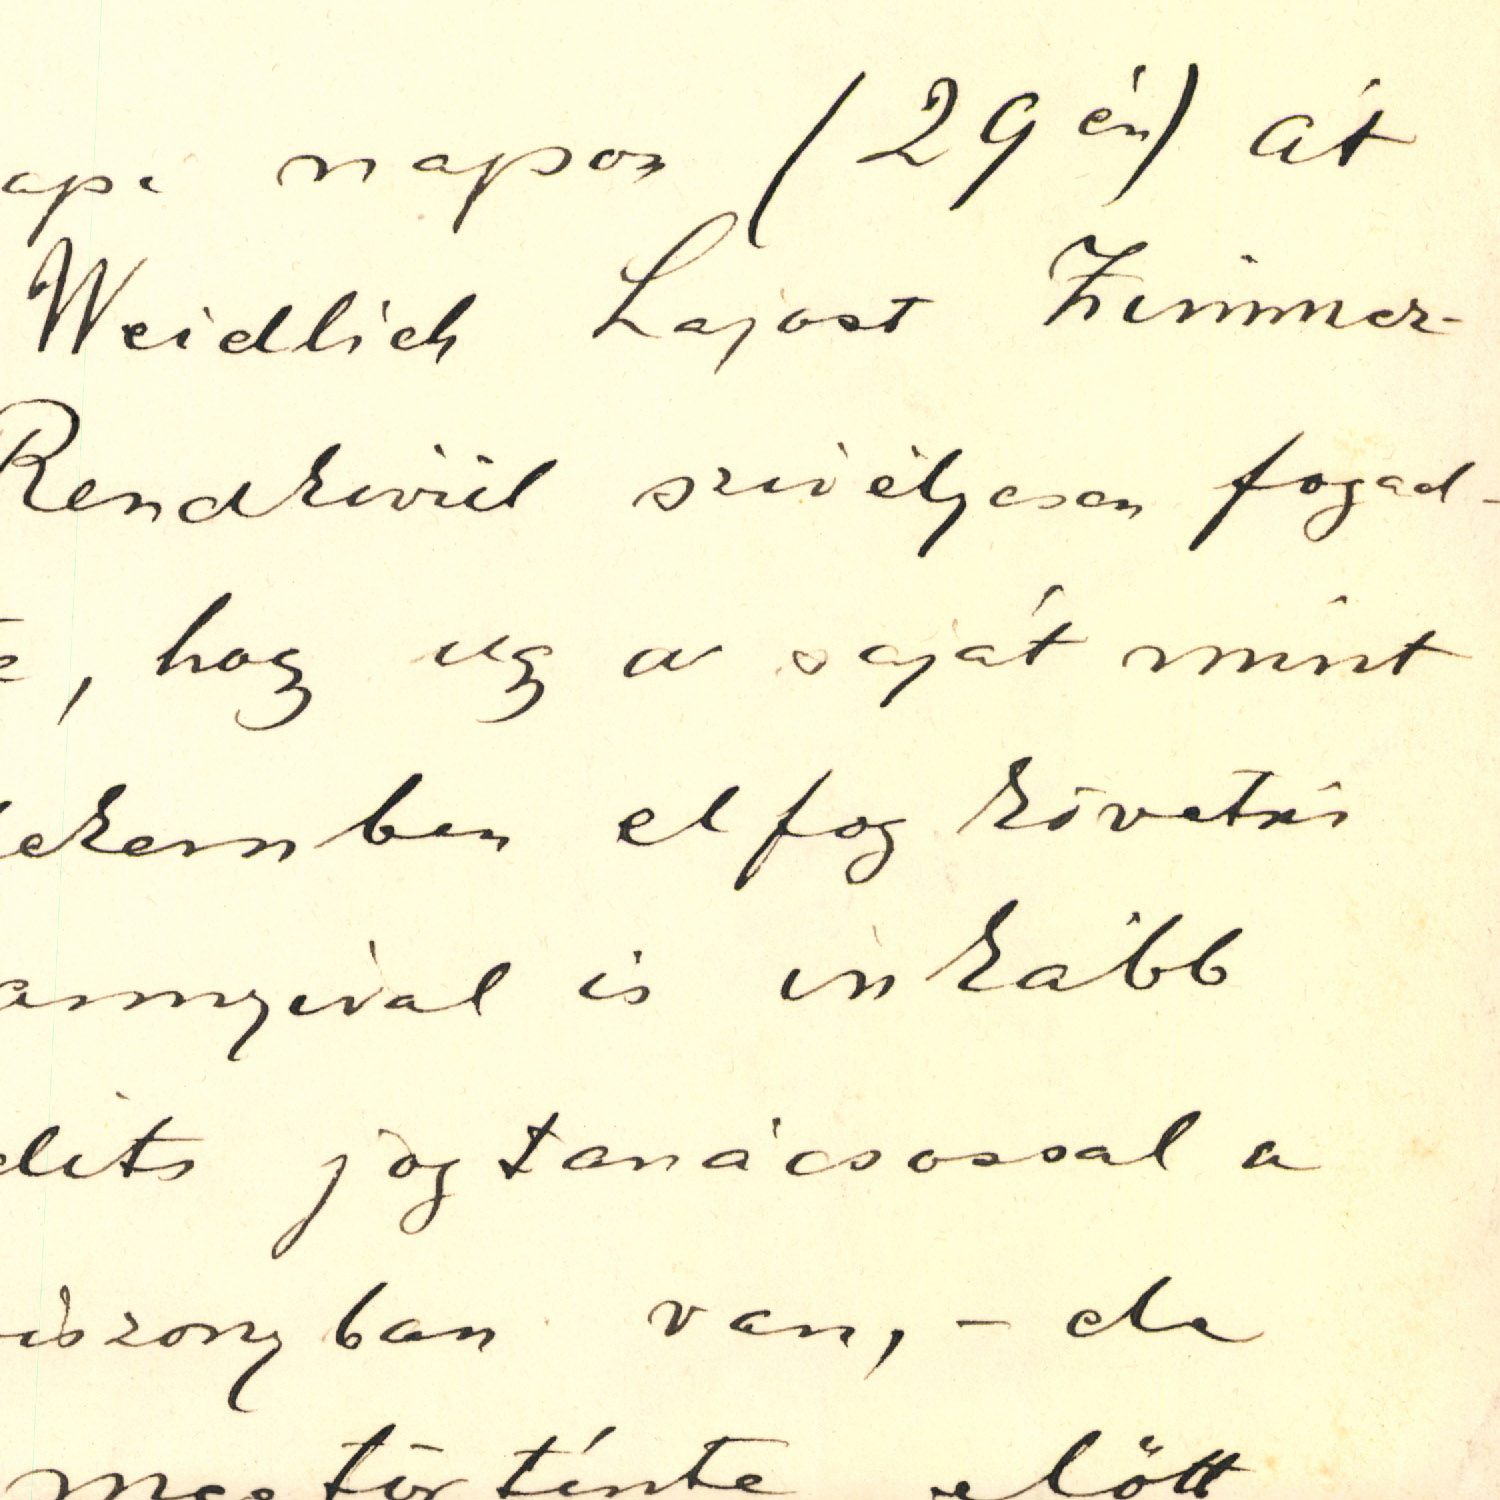 api napon (29én) át
Weidlich Lajost Zimmer-
Rendkivül szivélyesen fogad-
, hogy ugy a saját mint
ekemben elfog követni
annyival is inkább
jogtanácsossal a
iszonyban van, - de
megtörténte előtt